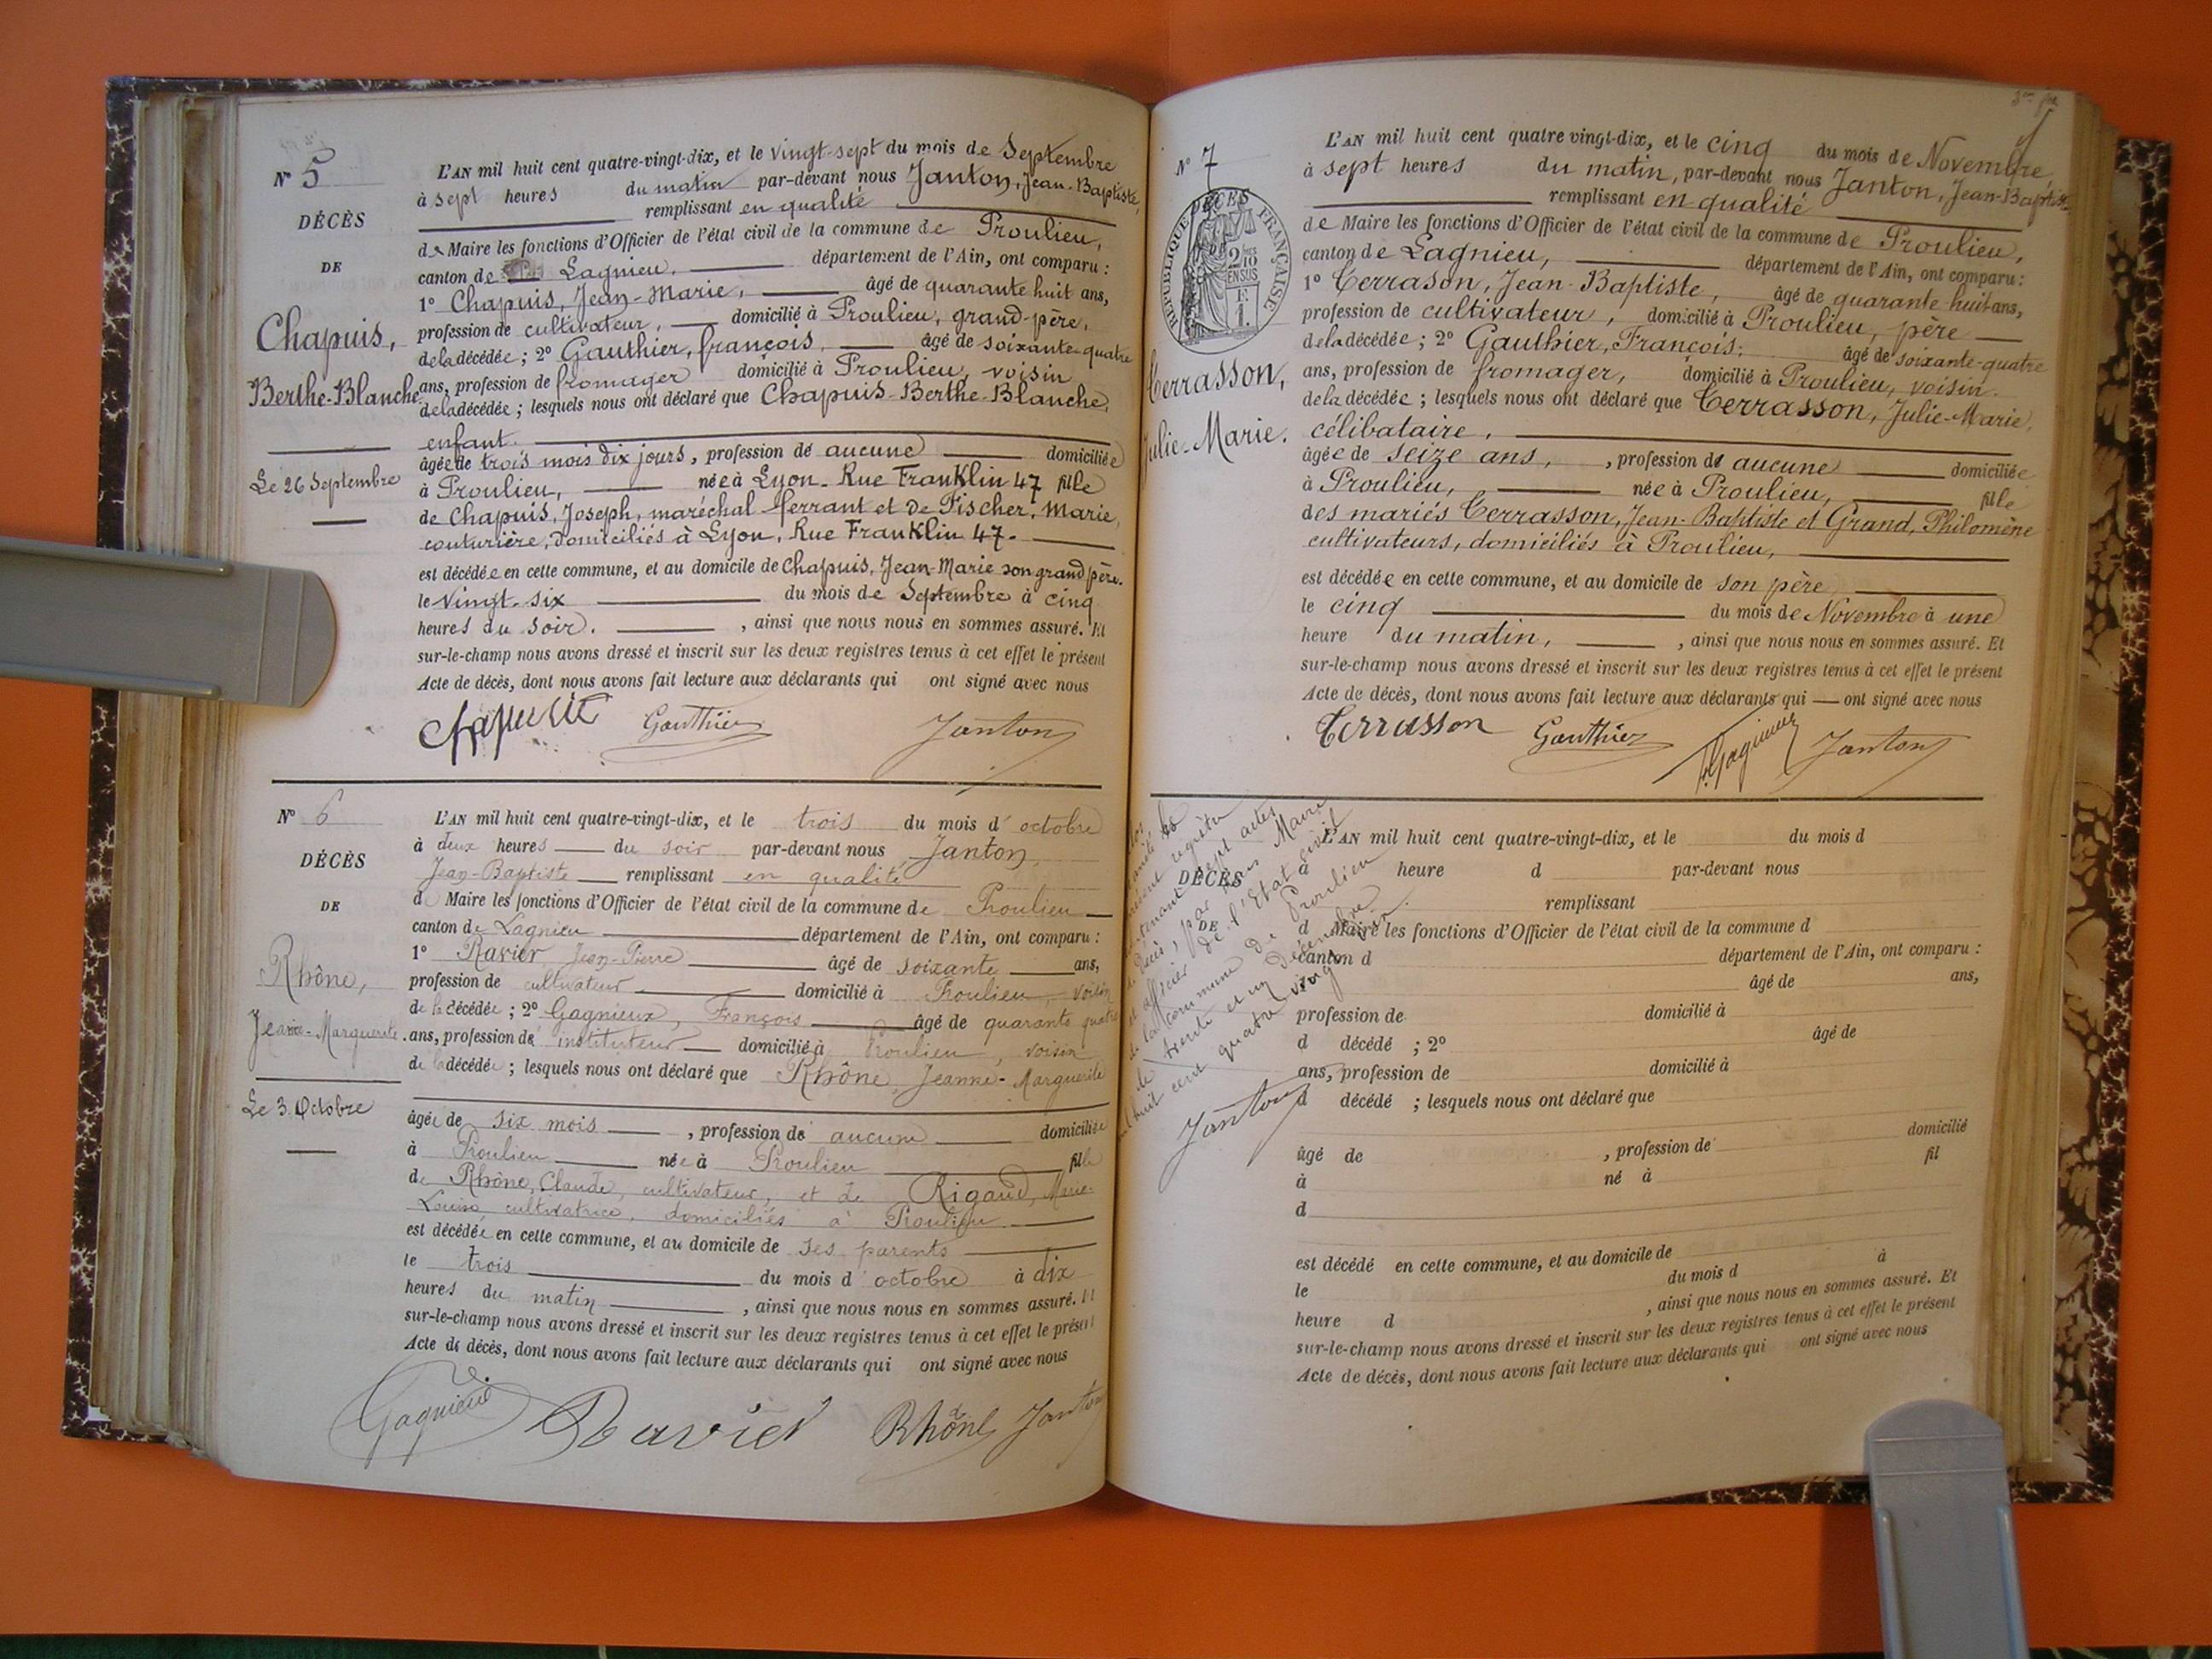 N° 5
DÉCÈS
DE
Chapuis,
Berthe-Blanche
Le 26 Septembre
L'AN mil huit cent quatre-vingt-dix, et le vingt-sept du mois de Septembre
à sept heures du matin par-devant nous Janton, Jean-Baptiste,
remplissant en qualité
de Maire les fonctions d'Officier de l'état civil de la commune de Proulieu,
canton de Lagnieu, département de l'Ain, ont comparu :
1° Chapuis, Jean-Marie, âgé de quarante huit ans,
profession de cultivateur, domicilié à Proulieu, grand-père,
de la décédée ; 2° Gauthier, françois, âgé de soixante-quatre
ans, profession de fromager domicilié à Proulieu, voisin
de la décédée ; lesquels nous ont déclaré que Chapuis-Berthe-Blanche,
enfant.
âgée de trois mois dix jours, profession de aucune domiciliée
à Proulieu, née à Lyon-Rue Franklin 47 fille
de Chapuis, Joseph, maréchal ferrant et de Fischer, Marie,
couturière, domiciliés à Lyon, Rue Franklin 47.
est décédée en cette commune, et au domicile de Chapuis, Jean-Marie son grand père.
le vingt-six du mois de Septembre à cinq
heures du soir. , ainsi que nous nous en sommes assuré. Et
sur-le-champ nous avons dressé et inscrit sur les deux registres tenus à cet effet le présent
Acte de décès, dont nous avons fait lecture aux déclarants qui ont signé avec nous
Chapuis Gauthier Janton
N° 6
DÉCÈS
DE
Rhône,
Jeanne-Marguerite.
Le 3 Octobre
L'AN mil huit cent quatre-vingt-dix, et le trois du mois d'octobre
à deux heures du soir par-devant nous Janton,
Jean-Baptiste remplissant en qualité
d Maire les fonctions d'Officier de l'état civil de la commune de Proulieu
canton de Lagnieu département de l'Ain, ont comparu :
1° Ravier Jean-Pierre âgé de soixante ans,
profession de cultivateur domicilié à Proulieu, voisin
de la décédée ; 2° Gagnieux, François âgé de quarante quatre
ans, profession de instituteur domicilié à Proulieu, voisin
de la décédée ; lesquels nous ont déclaré que Rhône, Jeanne-Marguerite
âgée de six mois , profession de aucune domiciliée
à Proulieu née à Proulieu fille
de Rhône, Claude, cultivateur, et de Rigaud, Marie-
Louise cultivatrice, domiciliés à Proulieu
est décédée en cette commune, et au domicile de ses parents
le trois du mois d'octobre à dix
heures du matin , ainsi que nous nous en sommes assuré. Et
sur-le-champ nous avons dressé et inscrit sur les deux registres tenus à cet effet le présent
Acte de décès, dont nous avons fait lecture aux déclarants qui ont signé avec nous
Gagnieux Ravier Rhône Janton
N° 7
DÉCÈS
RÉPUBLIQUE FRANÇAISE
2/10
EN SUS
E.
1.
Terrasson,
Julie-Marie.
L'AN mil huit cent quatre vingt-dix, et le cinq du mois de Novembre,
à sept heures du matin, par-devant nous Janton, Jean-Baptiste
remplissant en qualité
de Maire les fonctions d'Officier de l'état civil de la commune de Proulieu,
canton de Lagnieu, département de l'Ain, ont comparu :
1° Terrason, Jean-Baptiste, âgé de quarante-huit ans,
profession de cultivateur, domicilié à Proulieu, père
de la décédée ; 2° Gauthier, François, âgé de soixante-quatre
ans, profession de fromager, domicilié à Proulieu, voisin.
de la décédée ; lesquels nous ont déclaré que Terrasson, Julie-Marie,
célibataire,
âgée de seize ans, , profession de aucune domiciliée
à Proulieu, née à Proulieu, fille
des mariés Terrasson, Jean-Baptiste et Grand, Philomène
cultivateurs, domiciliés à Proulieu,
est décédée en cette commune, et au domicile de son père
le cinq du mois de Novembre à une
heure du matin, , ainsi que nous nous en sommes assuré. Et
sur-le-champ nous avons dressé et inscrit sur les deux registres tenus à cet effet le présent
Acte de décès, dont nous avons fait lecture aux déclarants qui ont signé avec nous
Terrasson Gauthier F. Gagnieux Janton
présent registre
contenant sept actes
de décès, par nous Maire
et officier de l'Etat civil
de la commune de Proulieu
le trente et un Décembre
mil huit cent quatre vingt dix.
Janton
DÉCÈS
DE
L'AN mil huit cent quatre-vingt-dix, et le du mois d
à heure d par-devant nous
remplissant
d Maire les fonctions d'Officier de l'état civil de la commune d
canton d département de l'Ain, ont comparu :
âgé de ans,
profession de domicilié à
d décédé ; 2° âgé de
ans, profession de domicilié à
d décédé ; lesquels nous ont déclaré que
âgé de , profession de domicilié
à né à fil
d
est décédé en cette commune, et au domicile de
le du mois d à
heure d , ainsi que nous nous en sommes assuré. Et
sur-le-champ nous avons dressé et inscrit sur les deux registres tenus à cet effet le présent
Acte de décès, dont nous avons fait lecture aux déclarants qui ont signé avec nous